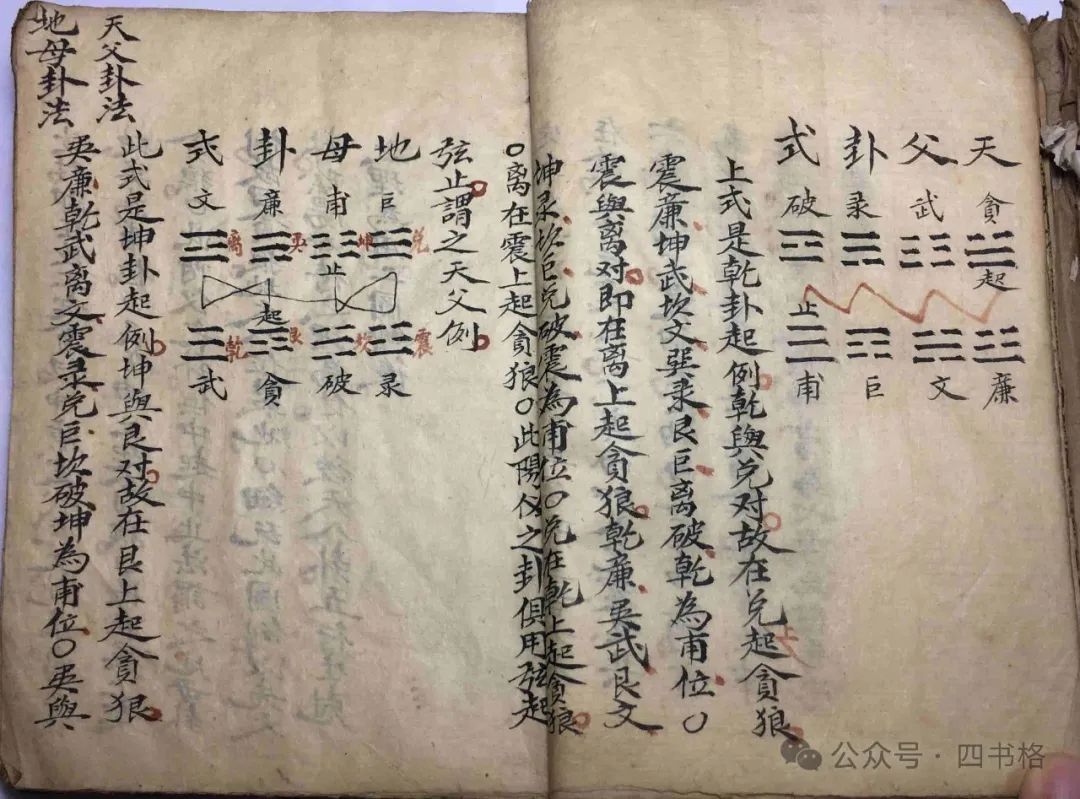 天父卦式
貪武录破
起
止
廉文巨甫
上式是乾卦起例乾與兑对故在兑起貪狼
震廉坤武坎文巽录艮巨离破乾為甫位〇
震與离对即在离上起貪狼乾廉巽武艮文
坤录坎巨兑破震為甫位〇兑在乾上起貪狼
〇离在震上起貪狼〇此陽仪之卦俱用弦起
弦止謂之天父例
地母卦式
巨甫廉文
兑坤巽离
止
起
震坎艮乾
录破貪武
天父卦法
此式是坤卦起例坤與艮对故在艮上起貪狼
地母卦法
巽廉乾武离文震录兑巨坎破坤為甫位〇巽與
公众号·四书格